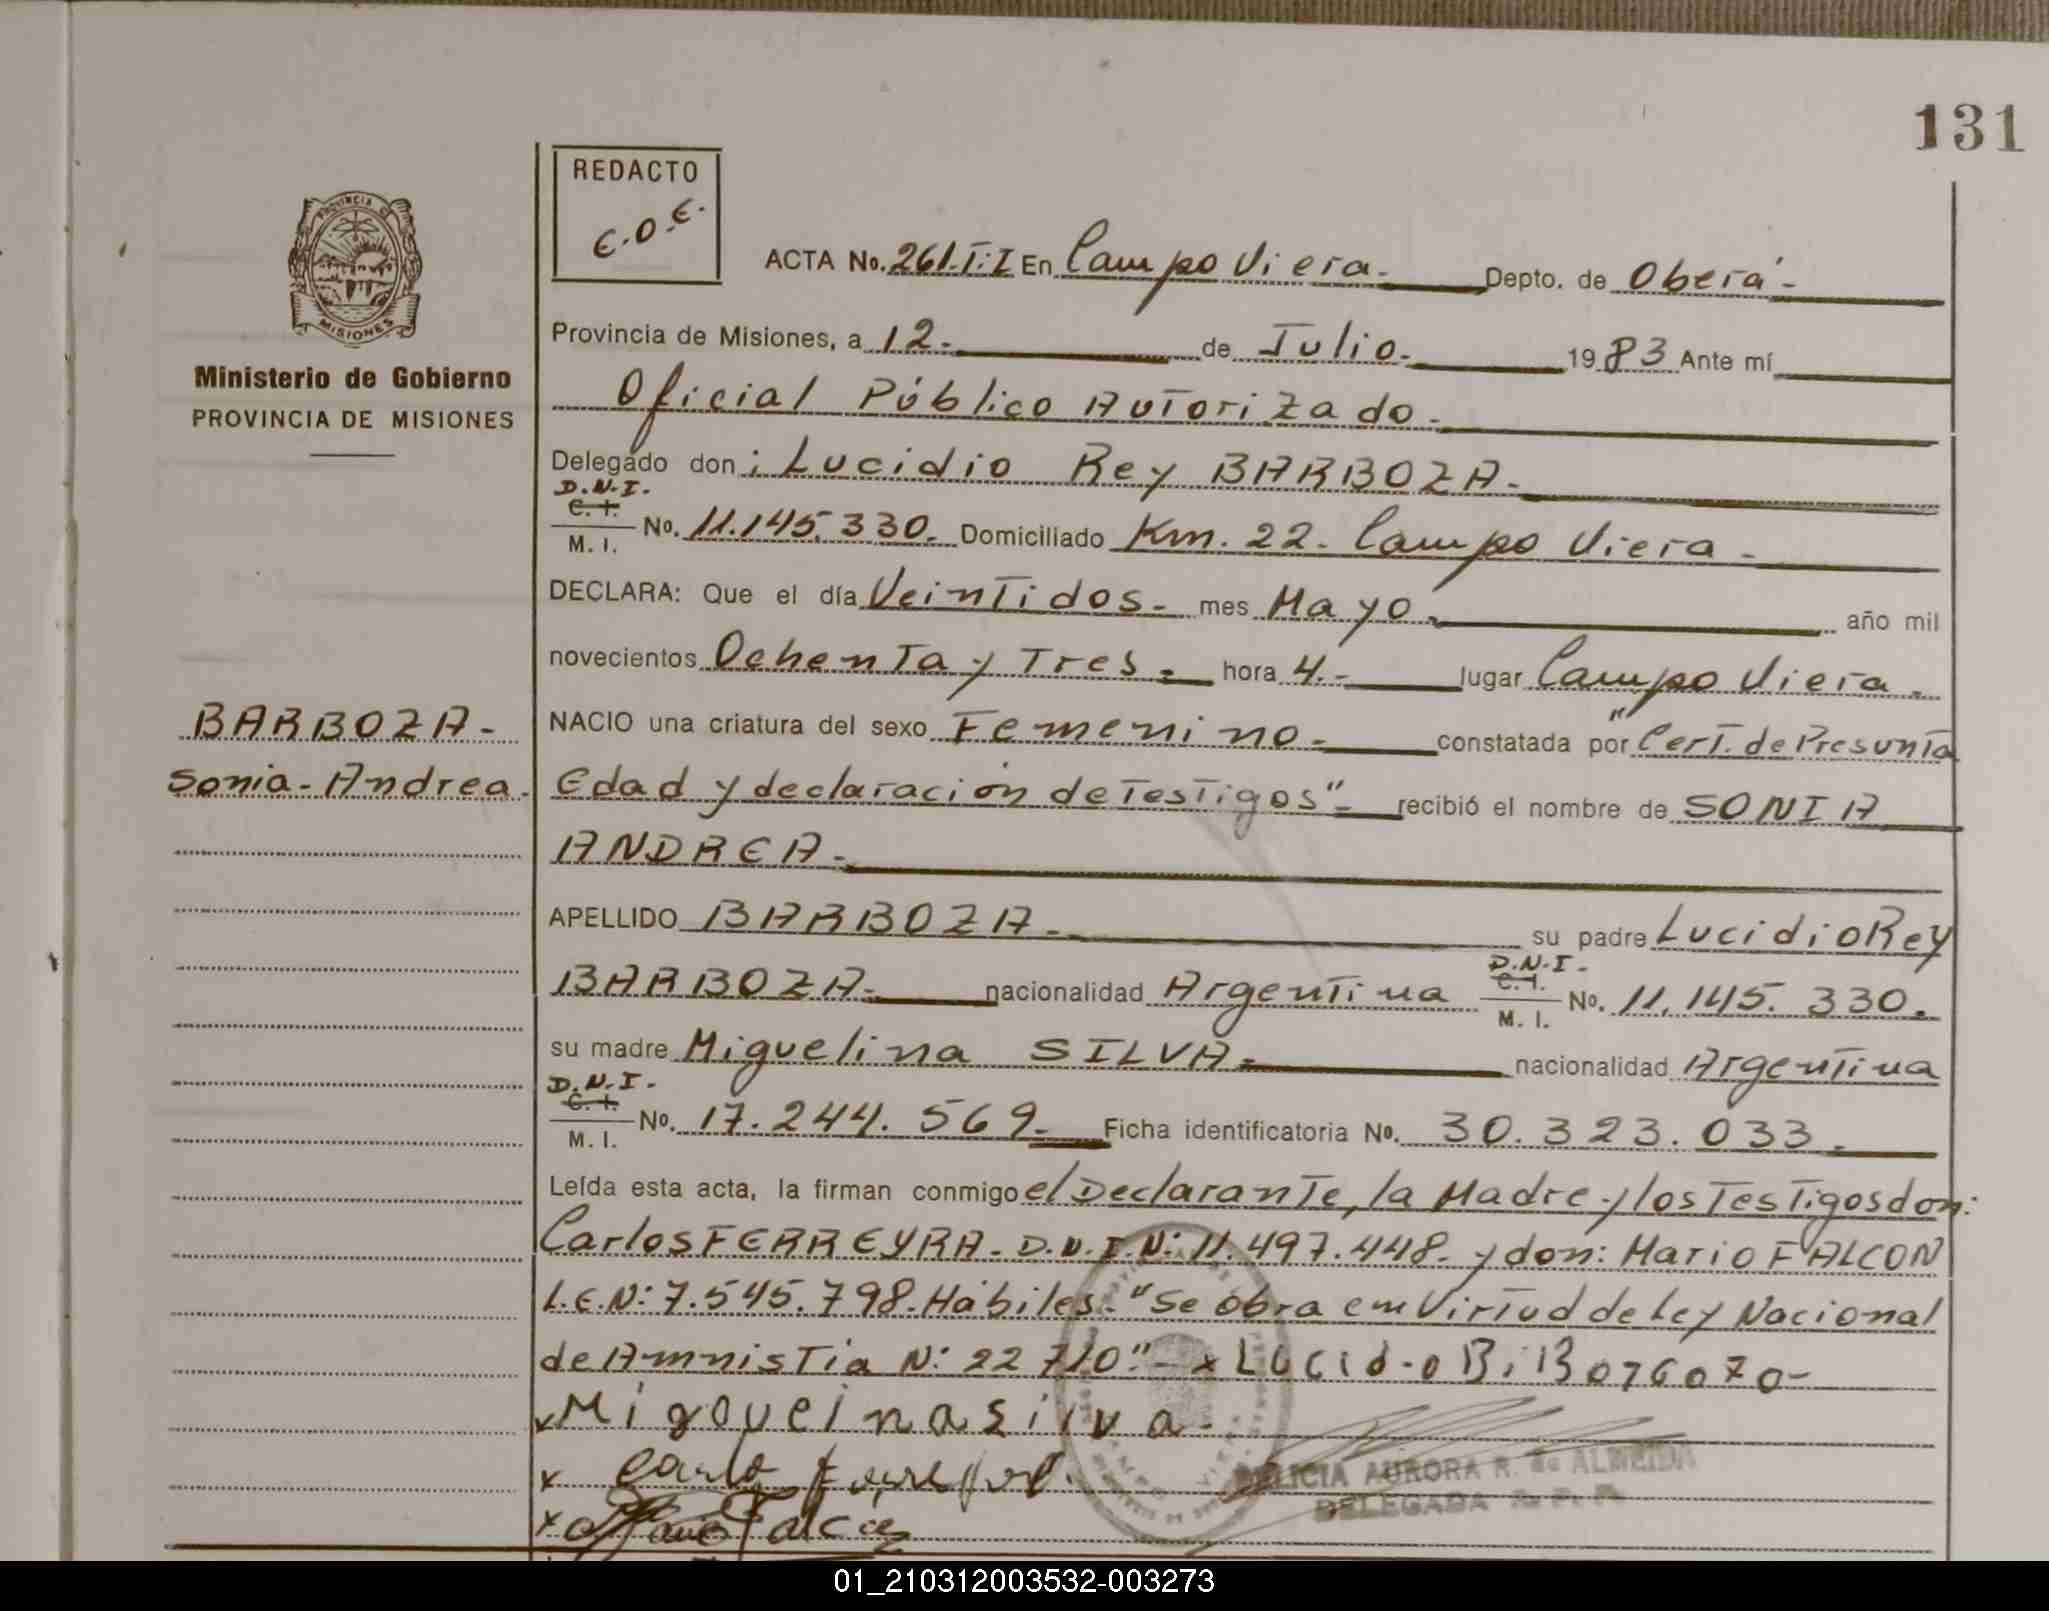 131
REDACTO
E.O.E.
PROVINCIA DE
MISIONES
Ministerio de Gobierno
PROVINCIA DE MISIONES
ACTA No. 261.T:I En Campo Viera.- Depto. de Oberá.-
Provincia de Misiones, a 12.- de Julio.- 1983 Ante mí
Oficial Público Autorizado.-
Delegado don: Lucidio Rey BARBOZA.-
D.N.I.
C. I.
M. I. No. 11.145.330.- Domiciliado Km. 22. Campo Viera.-
DECLARA: Que el día Veintidos.- mes Mayo.- año mil
novecientos Ochenta y Tres.- hora 4.- lugar Campo Viera.-
BARBOZA.-
Sonia-Andrea.
NACIO una criatura del sexo Femenino.- constatada por "Cert. de Presunta
Edad y declaración de Testigos".- recibió el nombre de SONIA
ANDREA.-
APELLIDO BARBOZA.- su padre Lucidio Rey
BARBOZA.- nacionalidad Argentina D.N.I. C.I. M. I. No. 11.145.330.
su madre Miguelina SILVA.- nacionalidad Argentina
D.N.I.
C. I.
M. I. No. 17.244.569.- Ficha identificatoria No. 30.323.033.-
Leída esta acta, la firman conmigo el Declarante, la Madre y los Testigos don:
Carlos FERREYRA. D.N.I.N: 11.497.448. y don: Mario FALCON
L.E.N: 7.545.798. Hábiles.- "Se obra em Virtud de Ley Nacional
de Amnistia N: 22 710".- x
x Migueinasilva.
x
x Falcon
DELICIA AURORA R. de ALMEIDA
DELEGADA R. P. P.
01_210312003532-003273